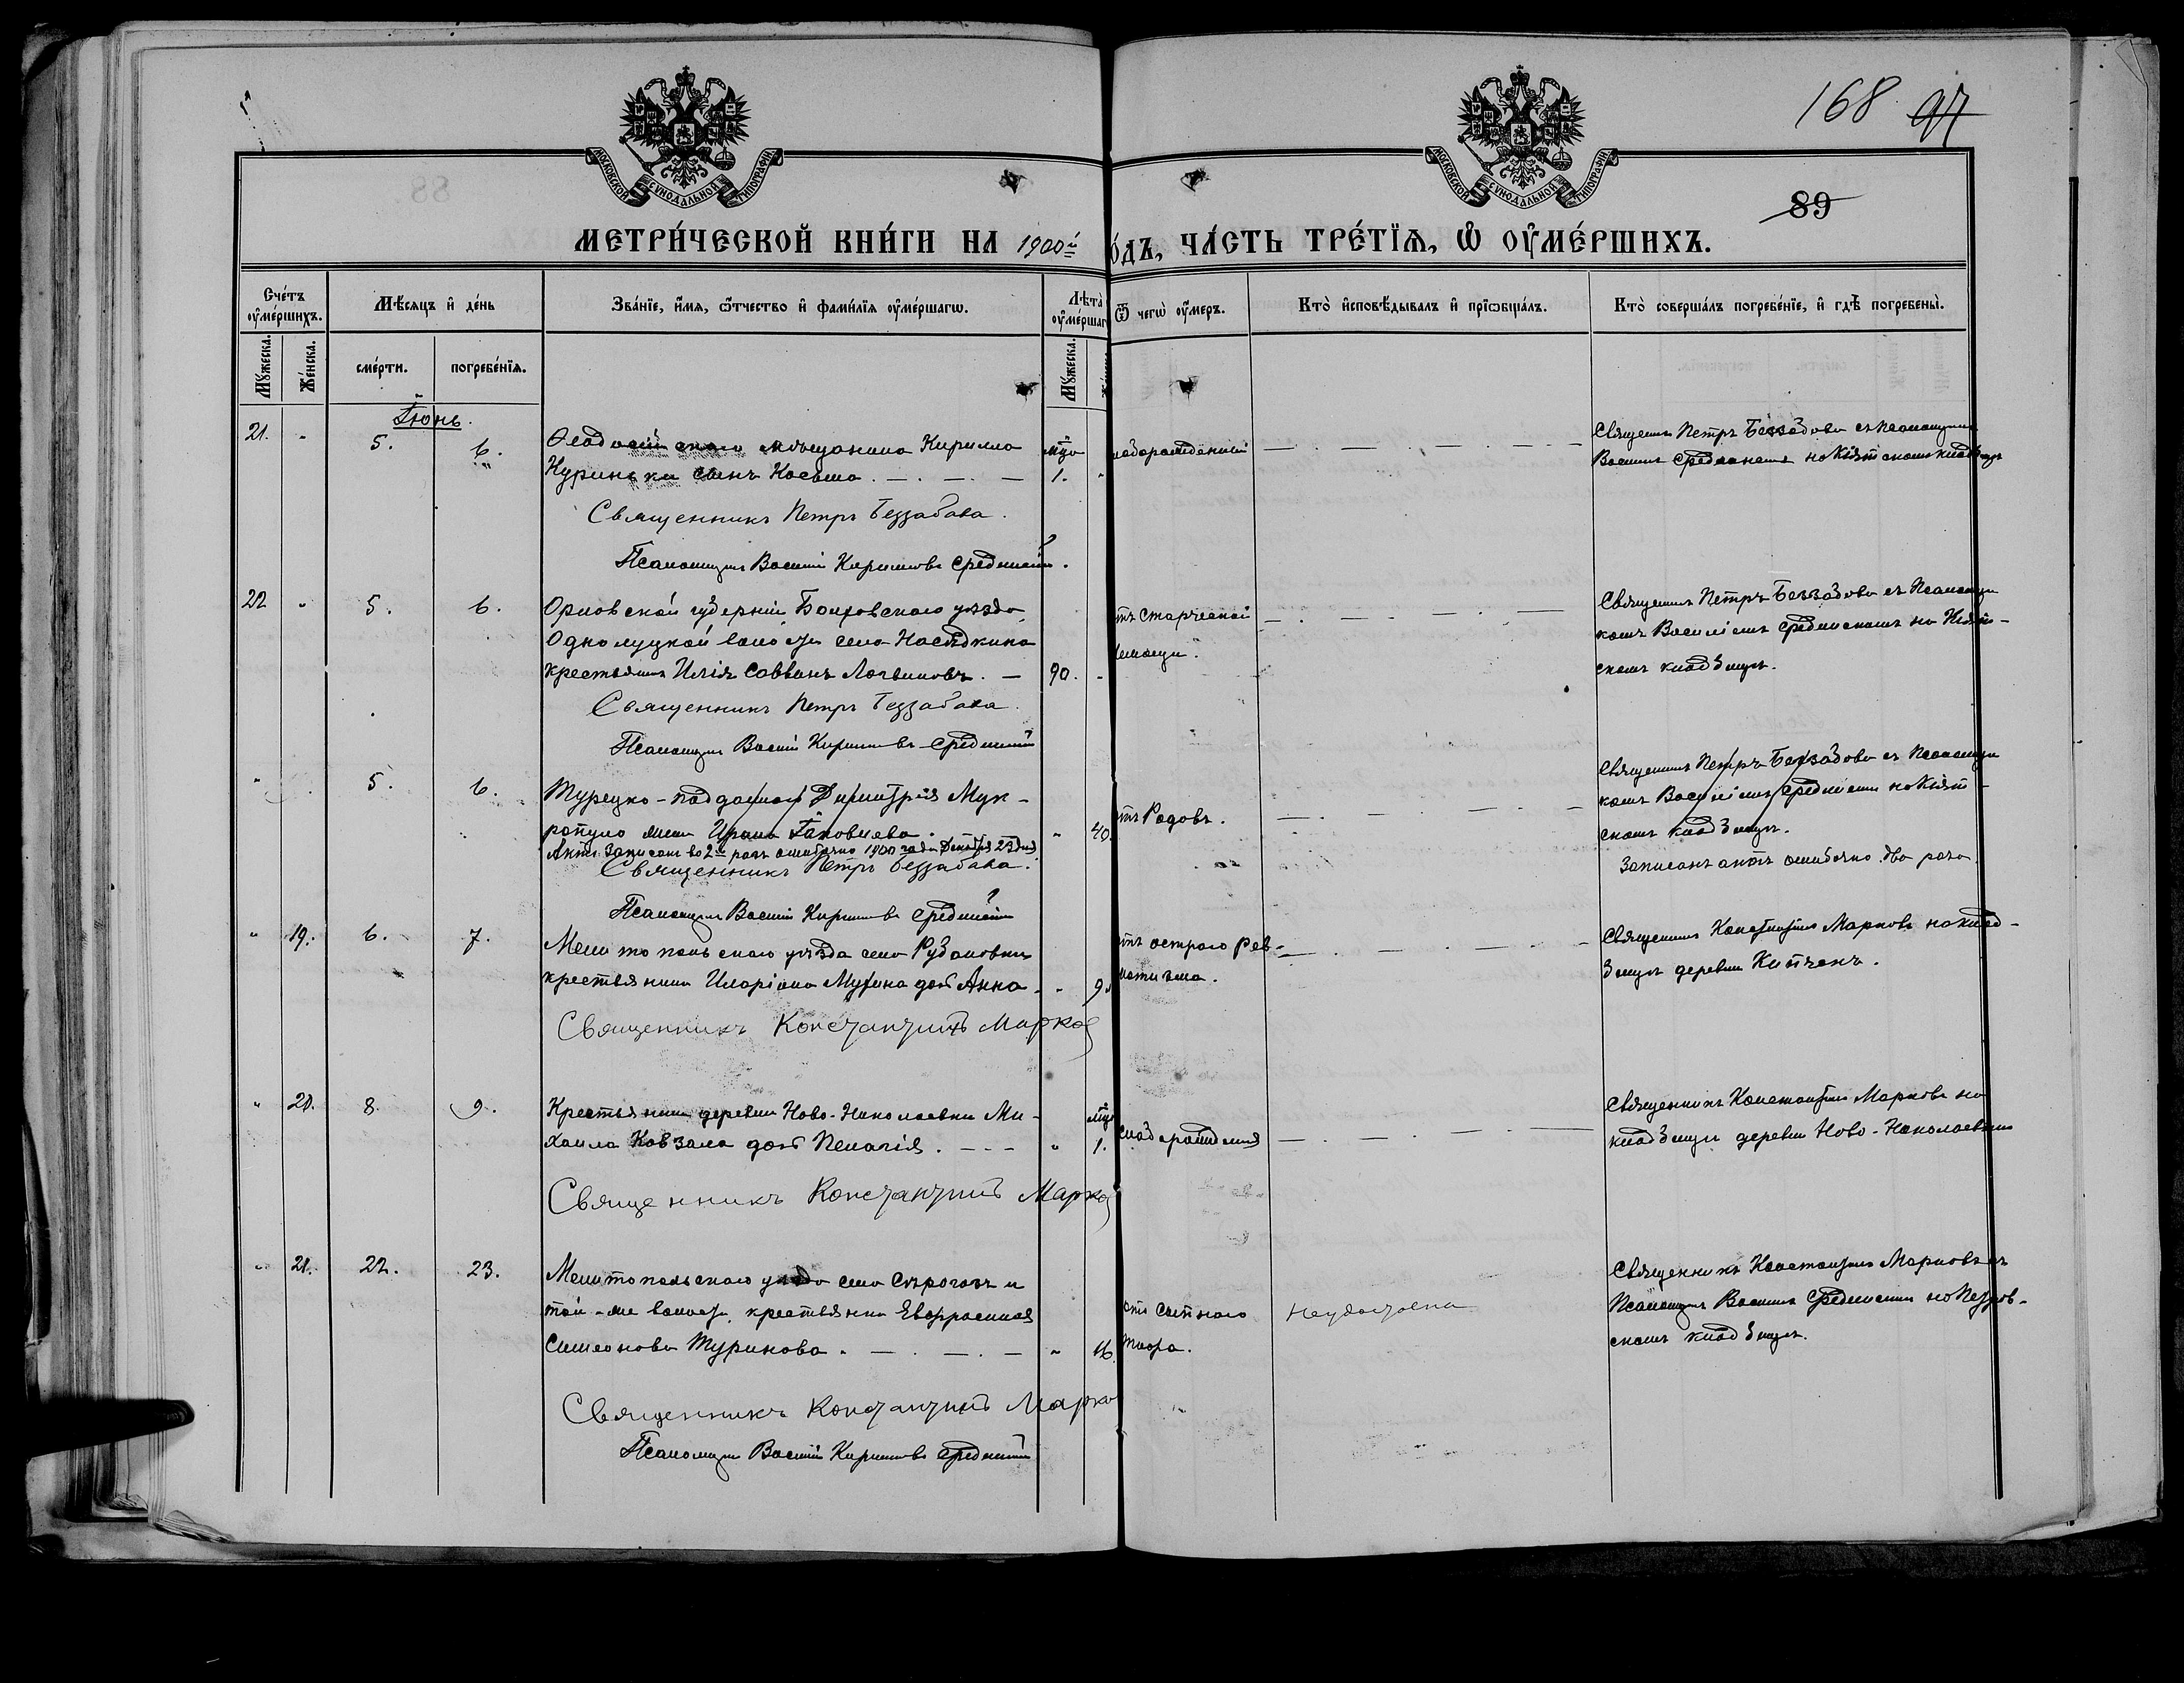 168 97
89
МОСКОВСКОЙ СѴНОДАЛЬНОЙ ТИПОГРАФІИ
МОСКОВСКОЙ СѴНОДАЛЬНОЙ ТИПОГРАФІИ
МЕТРИ́ЧЕСКОЙ КНИ́ГИ НА 1900й
О́ДЪ, ЧА́СТЬ ТРЕ́ТІѦ, Ѡ҆ ОУ҆МЕ́РШИХЪ.
Сче́тъ оу҆ме́ршихъ.
Мѣ́сѧцъ и҆ де́нь
Зва́нїе, и҆́мѧ, ѻ҆́тчество и҆ фами́лїѧ оу҆ме́ршагѡ.
Лѣ́та оу҆ме́ршаг
Ѿ чегѡ̀ оу҆́меръ.
Кто̀ и҆сповѣ́дывалъ и҆ прїѡбща́лъ.
Кто̀ соверша́лъ погребе́нїе, и҆ гдѣ̀ погребены̀.
Мꙋ́жеска.
Же́нска.
сме́рти.
погребе́нїѧ.
Мꙋ́жеска.
Іюнь.
21. 5. 6. Ѳеодосійскаго мѣщанина Кирилла мѣс
Куриньки сынъ Косьма. 1.
Священникъ Петръ Беззабава.
Псаломщикъ Василій Кирилловъ Срединскій.
слаборожденный
Священ. Петръ Беззабава съ псаломщик
Васил. Срединскимъ на Кіятскомъ кладбищѣ
22 5. 6. Орловской губерніи Болховскаго уѣзда
Однолуцкой волости села Насѣдкина
крестьянинъ Илія Саввинъ Логвиновъ. 90.
Священникъ Петръ Беззабава
Псаломщикъ Василій Кирилловъ Срединскій
тъ старческой
немощи.
Священникъ Петръ Беззабава съ Псаломщи
комъ Василіемъ Срединскимъ на Кіят-
скомъ кладбищѣ.
5. 6. Турецко-подданнаго Димитрія Мук-
жена Ирина Яковлева. 40.
Актъ записанъ во 2й разъ ошибочно 1900 года Декабря 23 дня
Священникъ Петръ Беззабава.
Псаломщикъ Василій Кирилловъ Срединскій
тъ Родовъ.
Священникъ Петръ Беззабава съ Псаломщи
комъ Василіемъ Срединскимъ на Кіят-
скомъ кладбищѣ.
Записанъ актъ ошибочно два раза.
19. 6. 7. Мелитопольскаго уѣзда села Рубановки
крестьянина Иларіона Мухина дочь Анна. 9.
Священникъ Константинъ Марков
отъ остраго рев-
матизма.
Священникъ Константинъ Марковъ на клад-
бищѣ деревни Кипчакъ.
20. 8. 9. Крестьянина деревни Ново-Николаевки Ми- мѣс
хаила Ковзала дочь Пелагія. 1.
Священникъ Константинъ Марков
слаборожденія
Священникъ Константинъ Марковъ на
кладбищѣ деревни Ново-Николаевки
21. 22. 23. Мелитопольскаго уѣзда села Сѣрогозъ и
той-же волости, крестьянка Евфросинія
Симеонова Турикова. 16.
Священникъ Константинъ Марко
Псаломщикъ Василій Кирилловъ Срединскій
отъ сыпного
тифа.
Неудостоена
Священникъ Константинъ Марковъ съ
Псаломщик. Василіемъ Срединскимъ на Петров-
скомъ кладбищѣ.